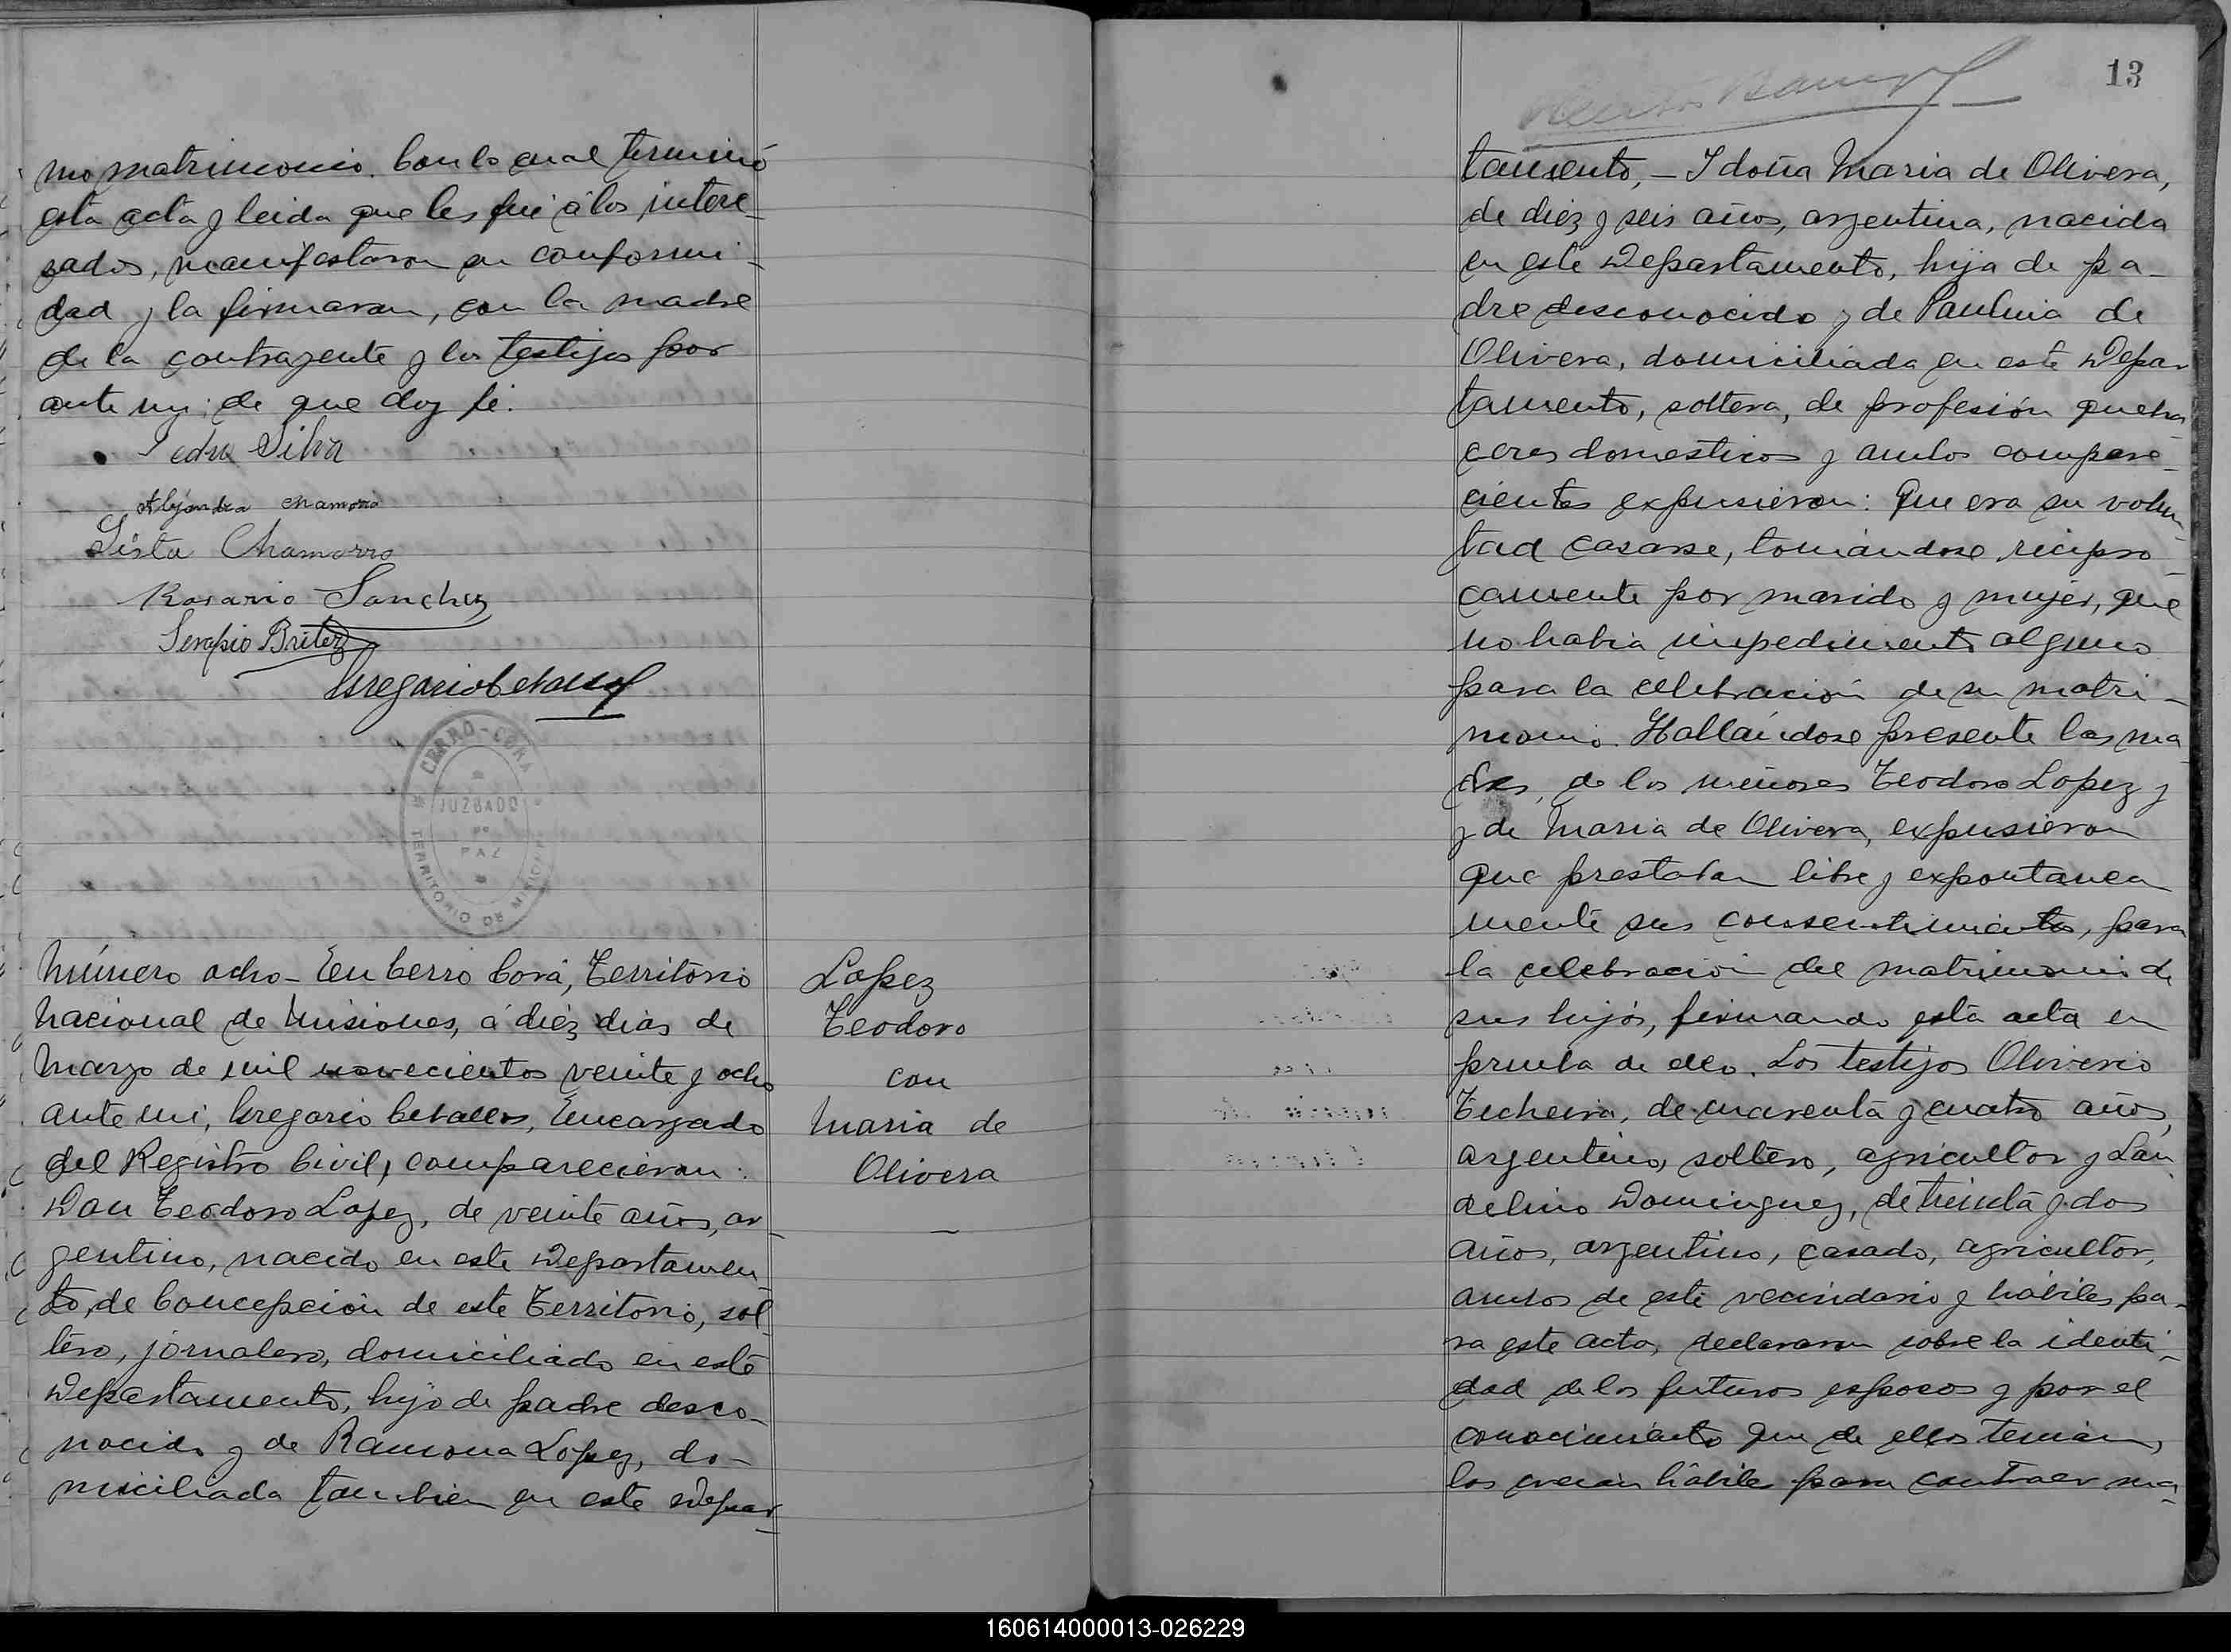 mo matrimonio. Con lo cual terminó
esta acta y leida que les fué á los intere-
sados, manifestaron su conformi-
dad y la firmaron, con la madre
de la contrayente y los testigos por
ante mi; de que doy fé.
Pedro Silva
Alejandra Chamorro
Sista Chamorro
Rosario Sanchez
Serapio Britez
Gregorio Ceballos
CERRO-CORÁ
JUZGADO
DE
PAZ
TERRITORIO DE MISIONES
Número ocho - En Cerro Corá, Territorio
Nacional de Misiones, á diéz dias de
Marzo de mil novecientos veinte y ocho
ante mi, Gregorio Ceballos, Encargado
del Registro Civil, comparecieron:
Don Teodoro Lopez, de veinte años, ar-
gentino, nacido en este Departamen-
to, de Concepción de este Territorio, sol-
tero, jornalero, domiciliado en este
Departamento, hijo de padre desco-
nocido y de Ramona Lopez, do-
miciliada tambien en este Depar-
Lopez
Teodoro
con
Maria de
Olivera
13
tamento, - I doña Maria de Olivera,
de diéz y seis años, argentina, nacida
en este Departamento, hija de pa-
dre desconocido y de Paulina de
Olivera, domiciliada en este Depar
tamento, soltera, de profesión queha
ceres domesticos y ambos compare-
cientes expusieron: Que era su volun-
tad casarse, tomándose recipro-
camente por marido y mujer, que
no habia impedimento alguno
para la celebración de su matri-
monio. Hallándose presente las ma
dres, de los menores Teodoro Lopez y
y de Maria de Olivera, expusieron
que prestaban libre y expontanea
mente sus consentimientos, para
la celebración del matrimonio de
sus hijos, firmando esta acta en
prueba de ello. Los testigos Oliverio
Techeira, de cuarenta y cuatro años,
argentino, soltero, agricultor y Lan-
delino Dominguez, de treinta y dos
años, argentino, casado, agricultor,
ambos de este vecindario y hábiles pa-
ra este acto, declararon sobre la identi-
dad de los futuros esposos y por el
conocimiento que de ellos tenian,
los creian hábiles para contraer ma-
160614000013-026229